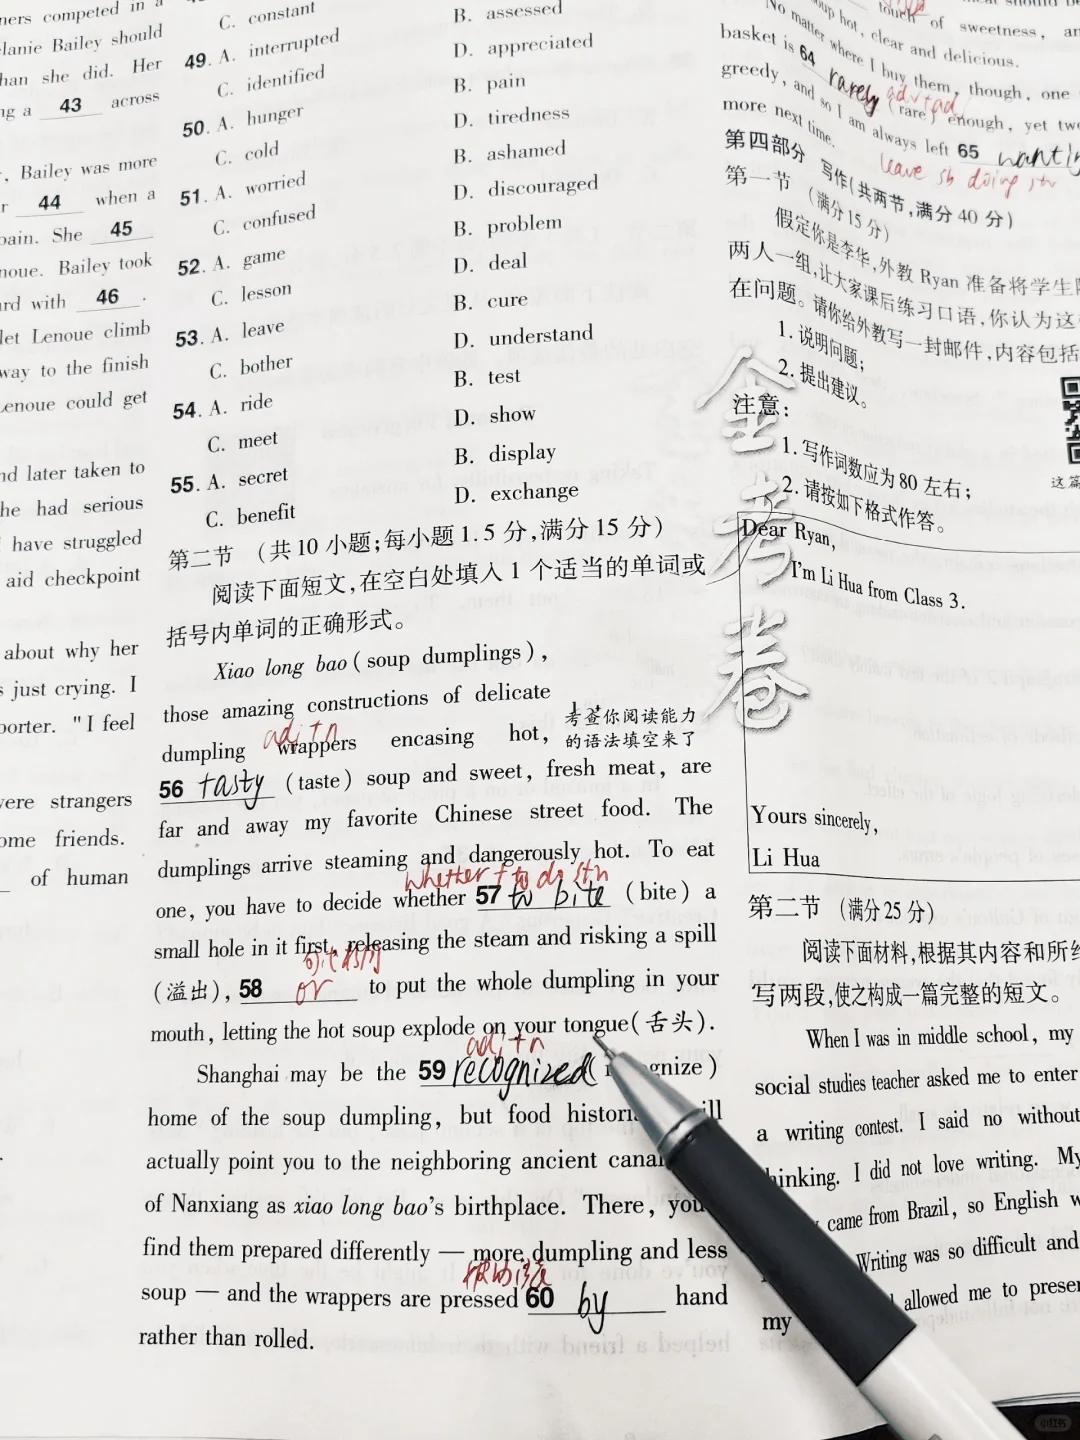 ners competed in a
lanie Bailey should
han she did. Her
ng a 43 across
, Bailey was more
r 44 when a
pain. She 45
noue. Bailey took
rd with 46 .
let Lenoue climb
way to the finish
Lenoue could get
nd later taken to
he had serious
have struggled
aid checkpoint
about why her
s just crying. I
porter. "I feel
vere strangers
ome friends.
of human
C. constant
B. assessed
49. A. interrupted
D. appreciated
C. identified
B. pain
50. A. hunger
D. tiredness
C. cold
B. ashamed
51. A. worried
D. discouraged
C. confused
B. problem
52. A. game
D. deal
C. lesson
B. cure
53. A. leave
D. understand
C. bother
B. test
54. A. ride
D. show
C. meet
B. display
55. A. secret
D. exchange
C. benefit
第二节 (共10小题;每小题1.5分,满分15分)
阅读下面短文,在空白处填入1个适当的单词或
括号内单词的正确形式。
Xiao long bao (soup dumplings),
those amazing constructions of delicate
adj+n
dumpling wrappers encasing hot,
考查你阅读能力
的语法填空来了
56 tasty (taste) soup and sweet, fresh meat, are
far and away my favorite Chinese street food. The
dumplings arrive steaming and dangerously hot. To eat
whether + to do sth
one, you have to decide whether 57 to bite (bite) a
small hole in it first, releasing the steam and risking a spill
(溢出), 58 or to put the whole dumpling in your
mouth, letting the hot soup explode on your tongue(舌头).
adj+n
Shanghai may be the 59 recognized gnize)
home of the soup dumpling, but food histori ill
actually point you to the neighboring ancient canal
of Nanxiang as xiao long bao's birthplace. There, you
find them prepared differently — more dumpling and less
soup — and the wrappers are pressed 60 by hand
rather than rolled.
soup hot, clear and delicious.
touch of sweetness, an
No matter where I buy them, though, one
adv+adj
basket is 64 rarely (rare) enough, yet two
greedy, and so I am always left 65 wanting
more next time.
leave sb doing sth
第四部分 写作(共两节,满分40分)
第一节 (满分15分)
假定你是李华,外教Ryan准备将学生
两人一组,让大家课后练习口语,你认为这
在问题。请你给外教写一封邮件,内容包括
1. 说明问题;
2. 提出建议。
注意:
1. 写作词数应为80左右;
2. 请按如下格式作答。
这篇
金考卷
Dear Ryan,
I'm Li Hua from Class 3.
Yours sincerely,
Li Hua
第二节 (满分25分)
阅读下面材料,根据其内容和所给
写两段,使之构成一篇完整的短文。
When I was in middle school, my
social studies teacher asked me to enter
a writing contest. I said no without
hinking. I did not love writing. My
came from Brazil, so English w
Writing was so difficult and
allowed me to presen
my
小红书